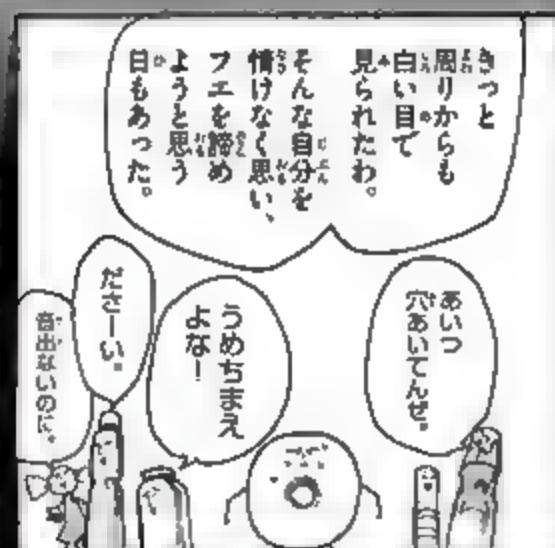 きっと
周りからも
白い目で
見られたわ。
そんな自分を
情けなく思い、
フエを諦め
ようと思う
日もあった。
あいつ
穴あいてんぜ。
うめちまえ
よな！
ださーい。
音出ないのに。